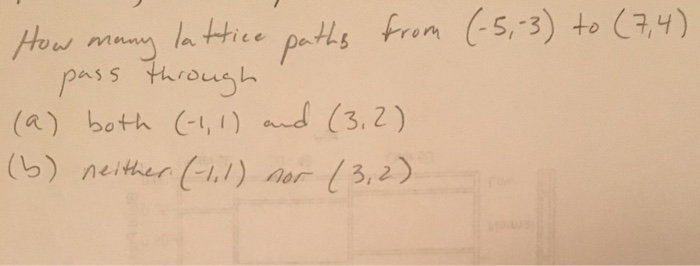 How many lattice paths from (-5,-3) to (7,4)
pass through
(a) both (-1,1) and (3,2)
(b) neither (-1,1) nor (3,2)